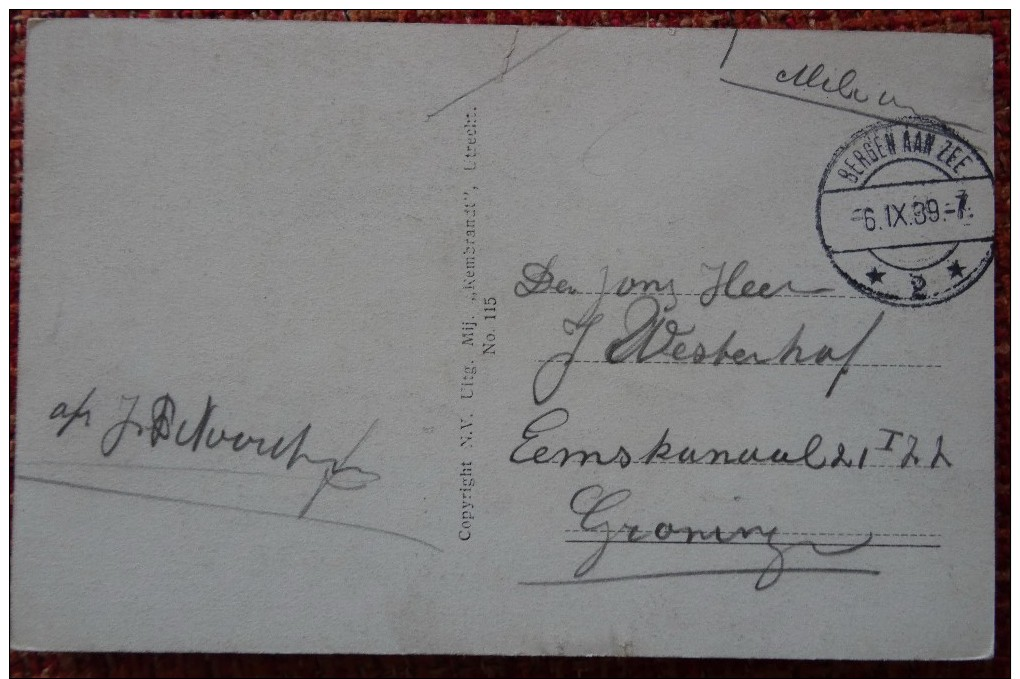 BERGEN AAN ZEE
6.IX.39.-7
2
De jong Heer
J Westerhof
Eemskanaal 21 I Z Z
Groningen
afz J.
Copyright N.V. Uitg. Mij. „Rembrandt", Utrecht.
No. 115